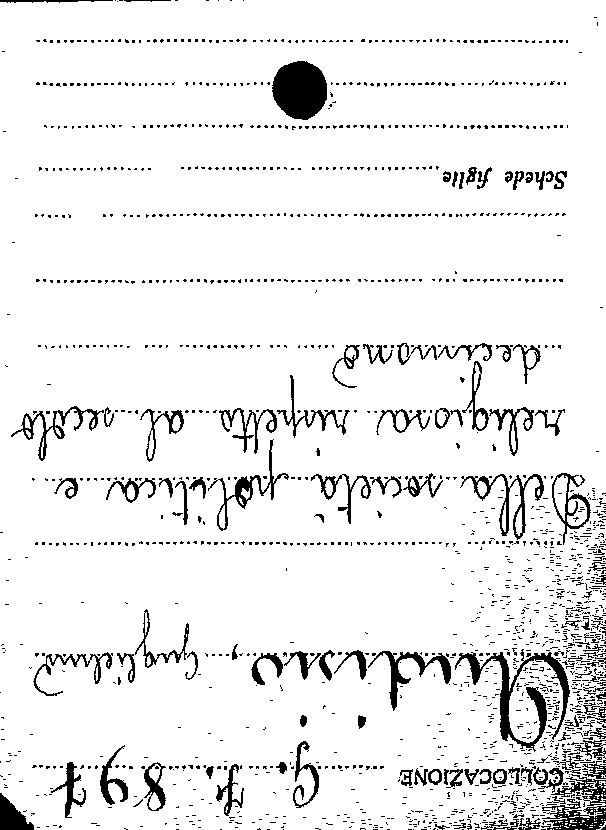 COLLOCAZIONE G. 7. 897
Audisio, Guglielmo
Della società politica e
religiosa rispetto al secolo
decimono
Schede figlie